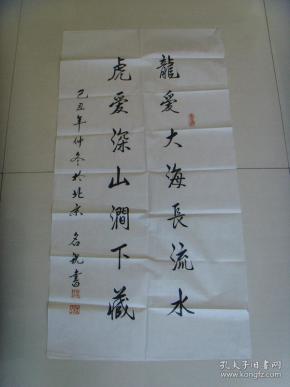 龍愛大海長流水
虎愛深山澗下藏
己丑年仲冬於北京
名	書
孔夫子旧书网